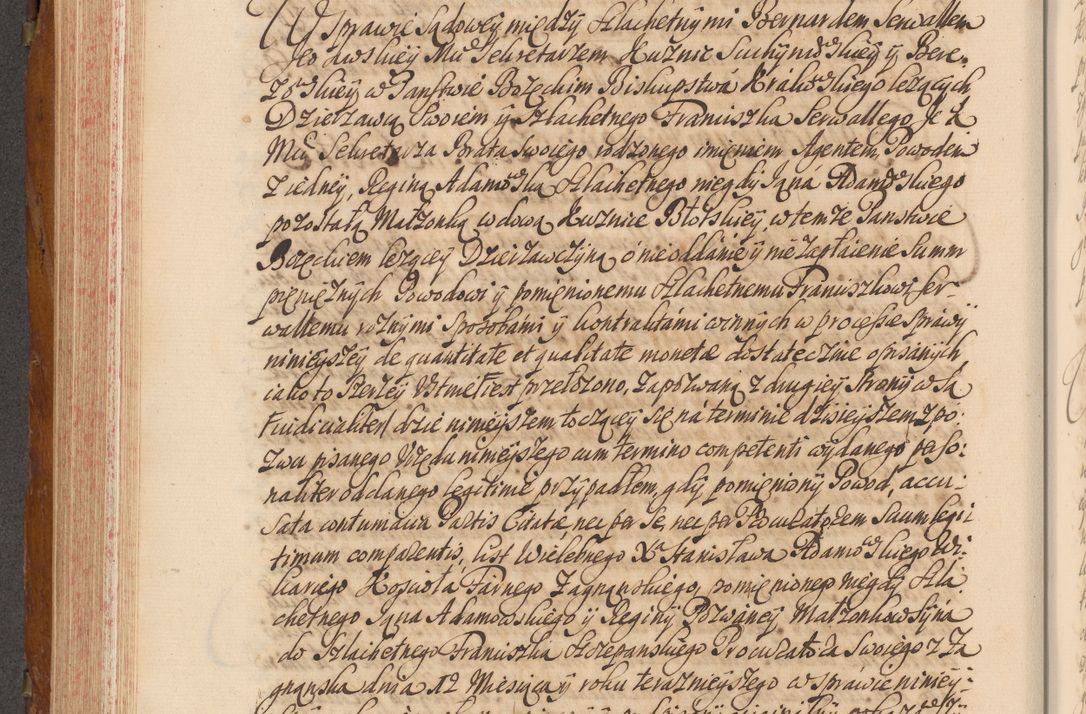 W Sprawie Sądowey między Szlachetnymi Bernardem Serwallem
JKo Mści Sekretarzem Kuźnic Suchyniowskiey y Bere-
zowskiey w Państwie Bozęckim Biskupstwa Krakowskiego leżących
Dzierzawcą Swoiem y Szlachetnego Franciszka Serwallego JK
Mci Sekretarza Brata swoiego rodzonego imieniem Agentem, Powodem
z iedney, Reginą Adamowską Szlachetnego niegdy Jana Adamowskiego
pozostałą Małżonką wdową Kuźnice Błotskiey, w temże Państwie
Bozęckiem leżącey Dzierzawczyną o nieoddanie y niezapłacenie Summ
pięniężnych Powodowi y pomięnionemu Szlachetnemu Franciszkowi Ser-
wallemu rożnymi sposobami y kontraktami winnych w procesie sprawy
ninieyszey de quantitate et qualitate monetæ dostatecznie opisanych,
iako to szerzey Vtme est przełożono, zapozwaną z drugiey strony w Są
Iudicialiter dzie ninieyszem toczącey się na terminie dzisieyszem z po-
zwu pisanego Vrzędu ninieyszego cum termino competenti wydanego perso-
naliter oddanego legitime przypadłem, gdy pomięniony Powod, accu-
sata contumacia Partis Citatæ, nec per se, nec per Procuratorem suum legi-
timum comparentis, list Wielebnego X. Stanisława Adamowskiego Wi-
kariego Kościoła Farnego Zagnanskiego, pomięnionego niegdy Szla-
chetnego Jana Adamowskiego y Reginy Pozwaney Małżonkow Syna
do Szlachetnego Franciszka Szczepanskiego Procuratora Swoiego z Za
gnanska dnia 12 Miesiąca y roku teraznieyszego w sprawie niniey-